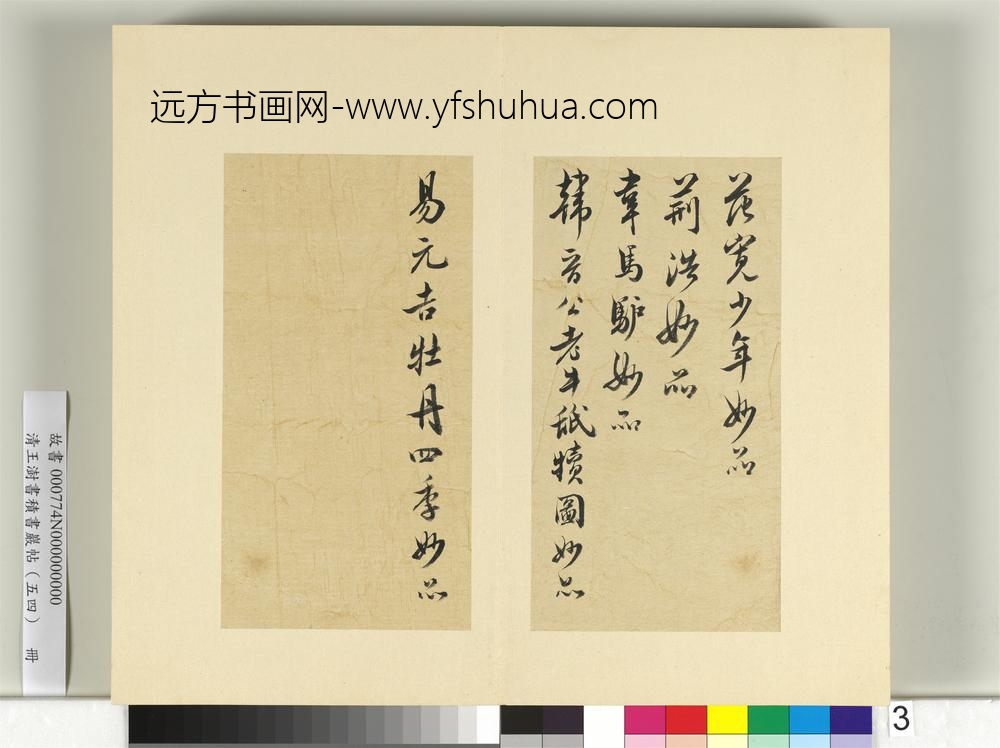 远方书画网-www.yfshuhua.com
范寛少年妙品
荊浩妙品
韋馬驢妙品
韓晉公老牛舐犢圖妙品
易元吉牡丹四季妙品
故書 000774N000000000
清王澍書積書巖帖（五四） 冊
3